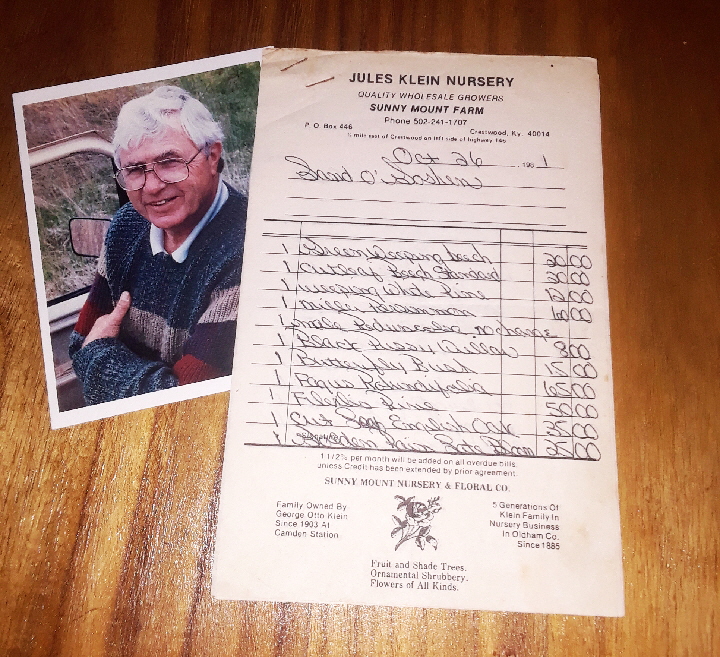 JULES KLEIN NURSERY
QUALITY WHOLESALE GROWERS
SUNNY MOUNT FARM
Phone 502-241-1707
P. O. Box 446 Crestwood, Ky. 40014
mile east of Crestwood on left side of highway 146
Oct 26 198 1
O' Goshen
1 Green Weeping beech 30 00
1 Cutleaf Beech Standard 30 00
1 Weeping White Pine 00
1 00
Male no charge
1 Black Pussy Willow 8 00
1 Butterfly Bush 15 00
1 Fagus Rotundifolia 65 00
1 Pine 50 00
1 Cut Leaf English Oak 35 00
1 25 00
1 1/2% per month will be added on all overdue bills.
unless Credit has been extended by prior agreement.
SUNNY MOUNT NURSERY & FLORAL CO.
Family Owned By
George Otto Klein
Since 1903 At
Camden Station
5 Generations Of
Klein Family In
Nursery Business
In Oldham Co.
Since 1885
Fruit and Shade Trees.
Ornamental Shrubbery.
Flowers of All Kinds.